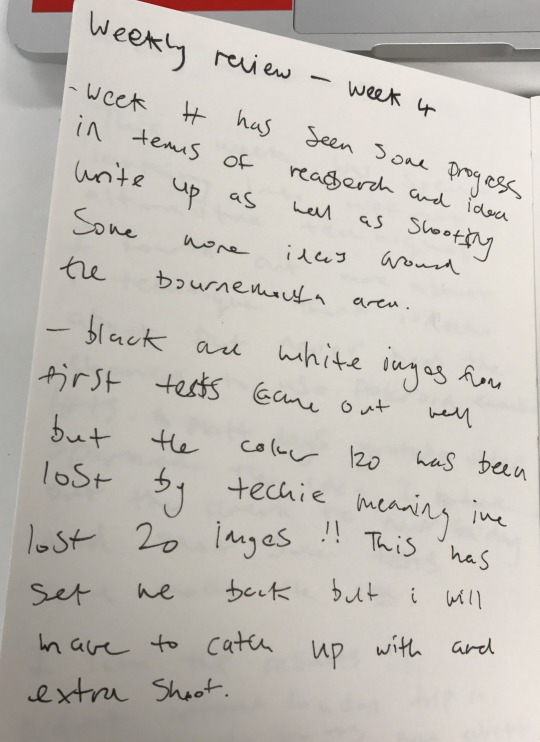 Weekly review – week 4
- Week 4 has seen some progress
in terms of reaserch and idea
write up as well as shooting
Some more ideas around
the bournemouth area.
– black and white images from
first tests came out well
but the colour 120 has been
lost by techie meaning ive
lost 20 images !! This has
set me back but i will
have to catch up with and
extra shoot.